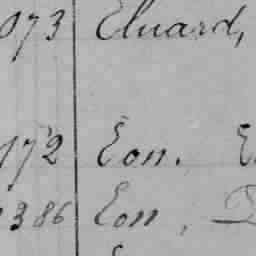 073 Eluard,
172 Eon. E
386 Eon,